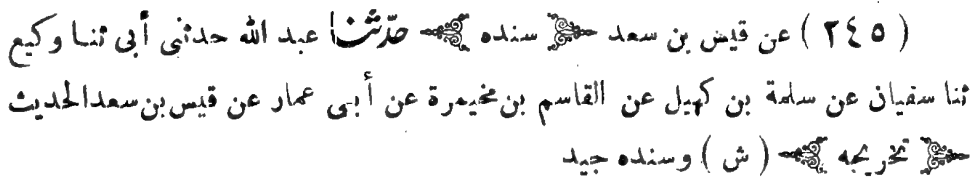 ( ٢٤٥ ) عن قيس بن سعد ﴿ سنده ﴾ حدّثنا عبد الله حدثنى أبى ثنا وكيع
ثنا سفيان عن سلمة بن كهيل عن القاسم بن مخيمرة عن أبى عمار عن قيس بن سعد الحديث
﴿ تخريجه ﴾ ( ش ) وسنده جيد